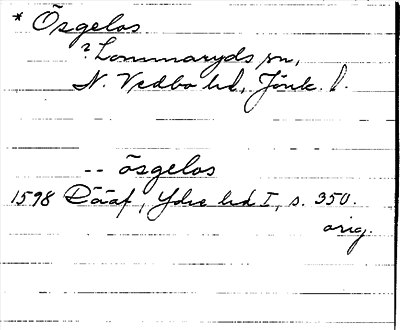 * Ösgelos
? Lommaryds sn,
N. Vedbo hd, Jönk. l.
-- ösgelos
1598 Rääf, Ydre hd I, s. 350.
orig.